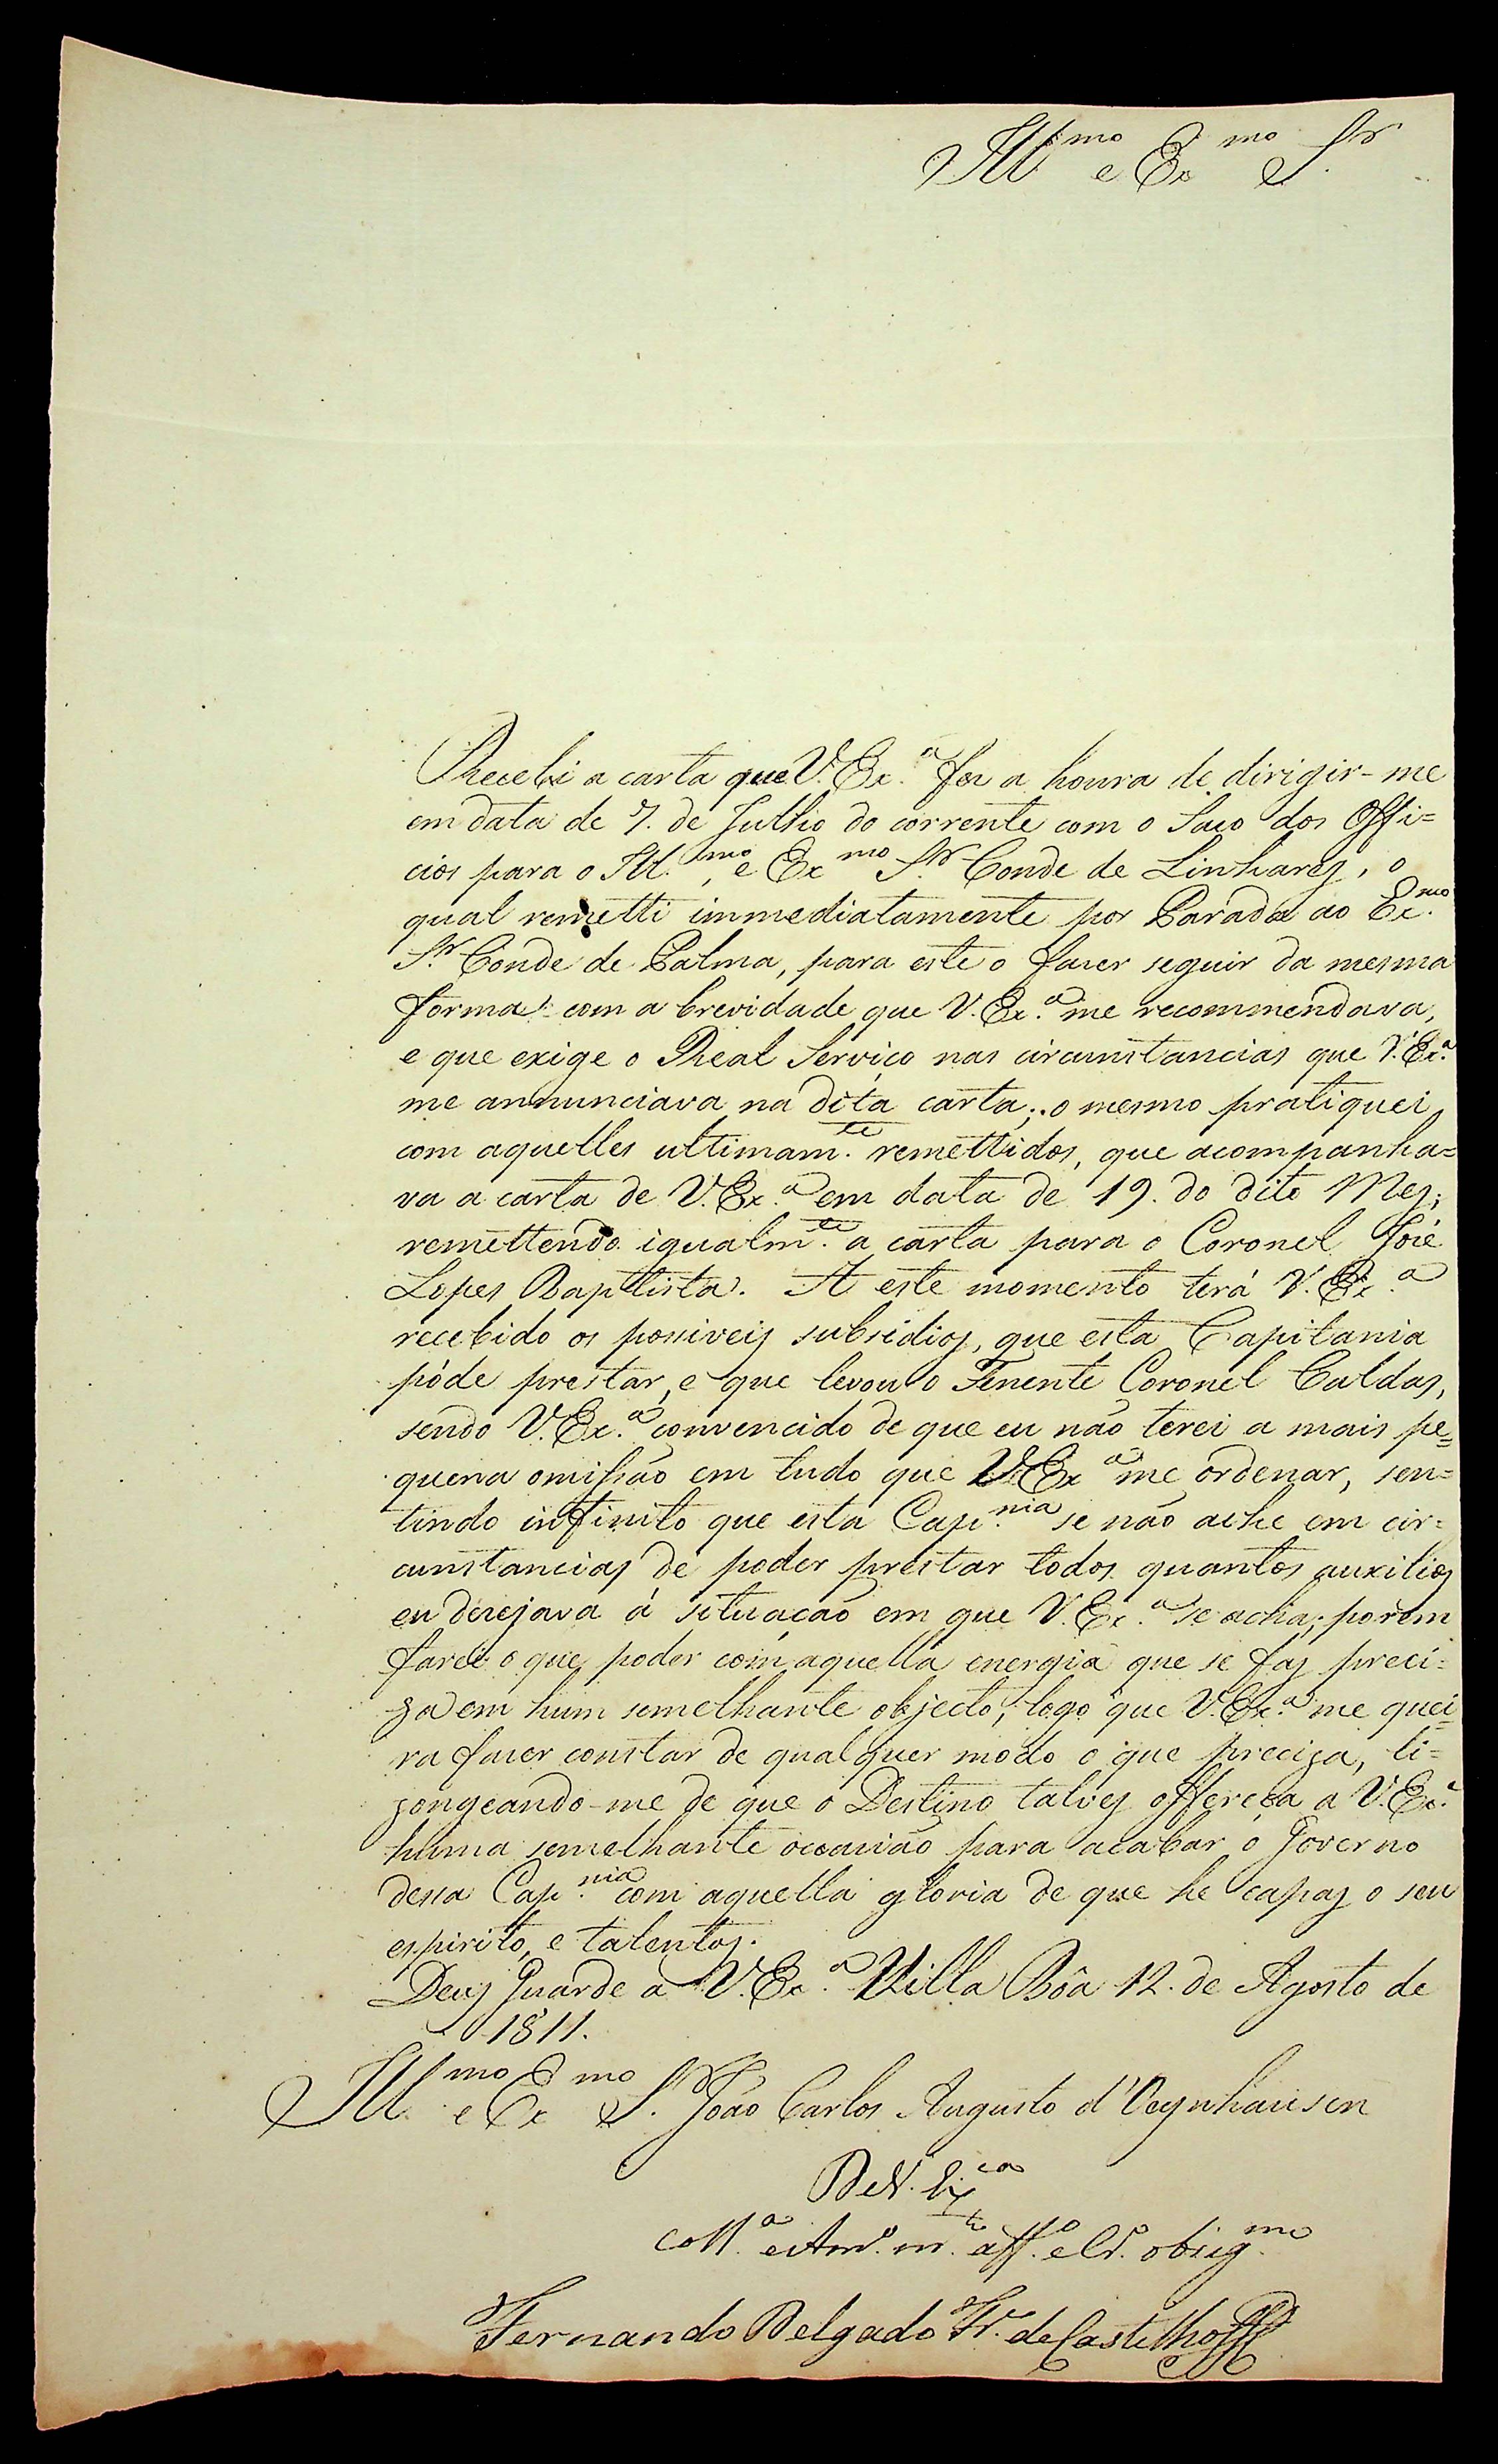 Ill.mo e Ex.mo S.r
Recebi a carta que V. Ex.a fez a honra de dirigir-me
em data de 7. de Julho do corrente com o Saco dos Offi=
cios para o Ill.mo, e Ex.mo S.r Conde de Linhares, o
qual remetti immediatamente por Parada ao Ex.mo
S.r Conde de Palma, para este o fazer seguir da mesma
forma com a brevidade que V. Ex.a me recommendava,
e que exige o Real Serviço nas circunstancias que V. Ex.a
me annunciava na dita carta; o mesmo pratiquei
com aquelles ultimam.te remettidos, que acompanha=
va a carta de V. Ex.a em data de 19. do dito Mez;
remettendo igualm.te a carta para o Coronel José
Lopes Baptista. A este momento terá V. Ex.a
recebido os possiveis subsidios, que esta Capitania
póde prestar, e que levou o Tenente Coronel Caldas,
sendo V. Ex.a convencido de que eu não terei a mais pe=
quena omissão em tudo que V. Ex.a me ordenar, sen=
tindo infinito que esta Cap.nia se não ache em cir=
cunstancias de poder prestar todos quantos auxilios
eu dezejava á situação em que V. Ex.a se acha; porem
farei o que poder com aquella energia que se faz preci=
za em hum semelhante objecto, logo que V. Ex.a me quei=
ra fazer constar de qualquer modo o que preciza, li=
zongeando-me de que o Destino talvez offereça a V. Ex.a
huma semelhante occasião para acabar o Governo
dessa Cap.nia com aquella gloria de que he capaz o seu
espirito, e talentos.
Deus Guarde a V. Ex.a Villa Bôa 12. de Agosto de
1811.
Ill.mo e Ex.mo S.r João Carlos Augusto d'Oeynhausen
De V. Ex.cia
e Am.o m.to aff.o e Cr.o obrig.mo
Fernando Delgado Fr.e de Castilho